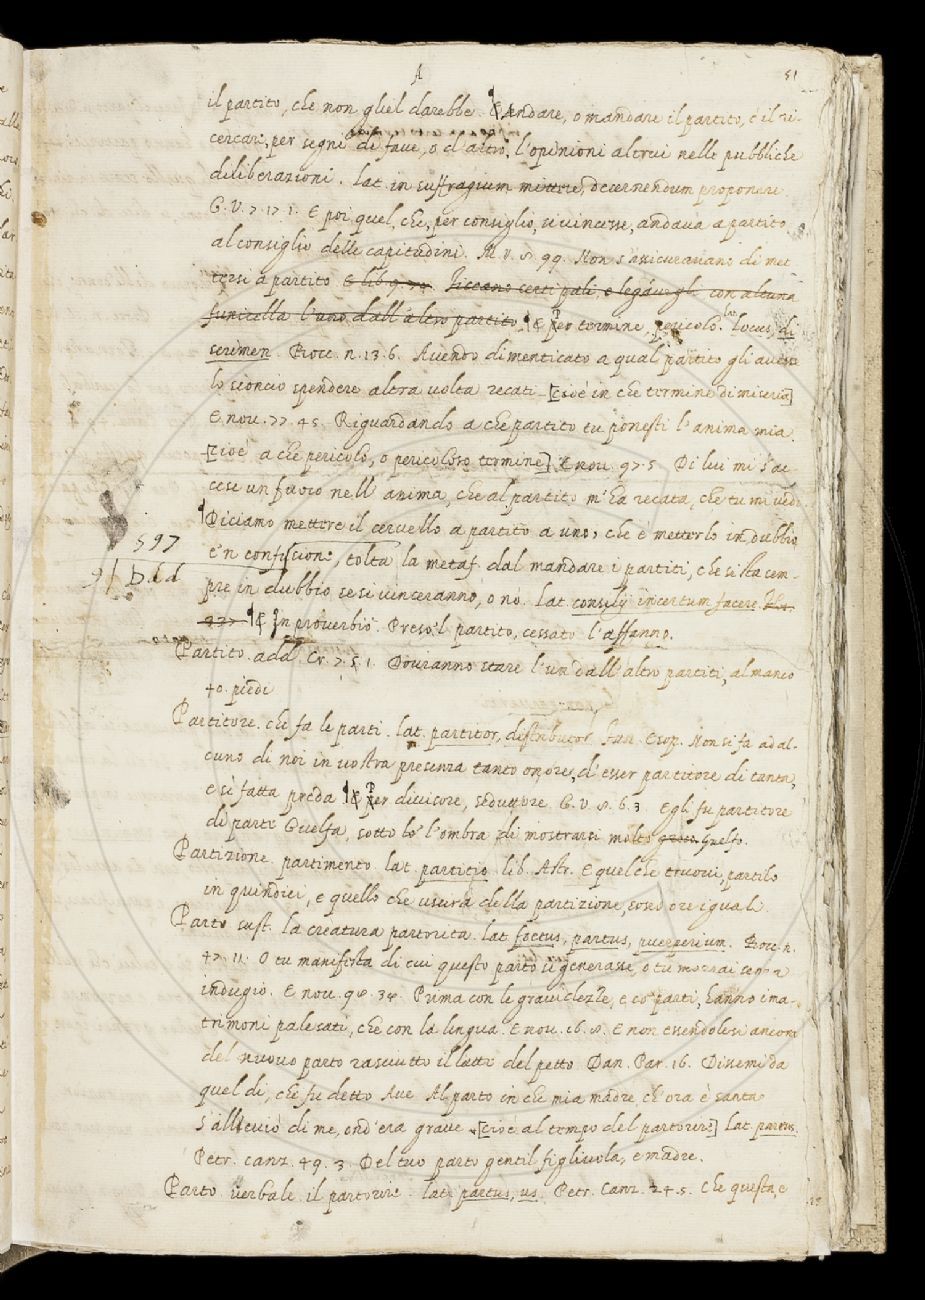 A
51
il partito, che non gliel darebbe. ¶ Andare, o mandare il partito, è il ri-
cercare, per segni di faue, o d'altro, l'opinioni altrui nelle pubbliche
deliberazioni. Lat. in suffragium mittere, decernendum proponere.
G.V. 7. 17. 1. E poi quel, che, per consiglio, si vincesse, andaua a partito
al consiglio delle capitudini. M.V. 8. 99. Non s'assicurauano di met
tersi a partito E lib 9 Ficcano certi pali, e legangli con alcuna
funicella l'uno dall'altro partito, ¶ Per termine, pericolo. lat. Locus, di
scrimen. Bocc. n. 13. 6. Auendo dimenticato a qual partito gli auesse
lo sconcio spendere altra uolta recati [cioè in che termine di miseria]
E nou. 77. 45. Riguardando a che partito tu ponesti l'anima mia.
[cioè a che pericolo, o pericoloso termine] E nou. 97. 5. Di lui mi s'ac
cese un fuoco nell'anima, che al partito m'ha recata, che tu mi vedi
Diciamo mettere il ceruello a partito a uno, che è metterlo in dubbio
e'n confusione, tolta la metaf. dal mandare i partiti, che si sta sem-
597
91 Ddd
pre in dubbio se si uinceranno, o nò. Lat. consilij incertum facere.
¶ In prouerbio. Preso 'l partito, cessato l'affanno.
Partito. add. Cr. 7. 5. 1. Douranno stare l'un dall'altro partiti, al manco
40. piedi
Partitore. che fa le parti. Lat. partitor, distributor. Fau. Esop. Non si fa ad al-
cuno di noi in uostra presenza tanto onore, d'esser partitore di tanta,
e sì fatta preda ¶ Per diuisore, seduttore G.V. 8. 63. Egli fu partitore
di parte Guelfa, sotto lo 'l'ombra di mostrarsi molto Guelfo.
Partizione. partimento lat. partitio. lib. Astr. E quel che truoui, partilo
in quindici, e quello che uscirà della partizione, sono ore iguali.
Parto sust. la creatura partorita. Lat. foetus, partus, puerperium. Bocc. n.
47. 11. O tu manifesta di cui questo parto si generasse, o tu morrai senza
indugio. E nou. 98. 34. Prima con le grauidezze, e co' parti, hanno i ma-
trimoni palesati, che con la lingua. E nou. 16. 8. E non essendolesi ancora
del nuouo parto rasciutto il latte del petto Dan. Par. 16. Dissemi da
quel dì, che fu detto Aue Al parto in che mia madre, ch'ora è santa
S'alleuiò di me, ond'era graue [cioè al tempo del partorire] Lat. partus.
Petr. canz. 49. 3. Del tuo parto gentil figliuola, e madre.
Parto uerbale. il partorire. lat. partus, us. Petr. Canz. 24. 5. Che questa, e